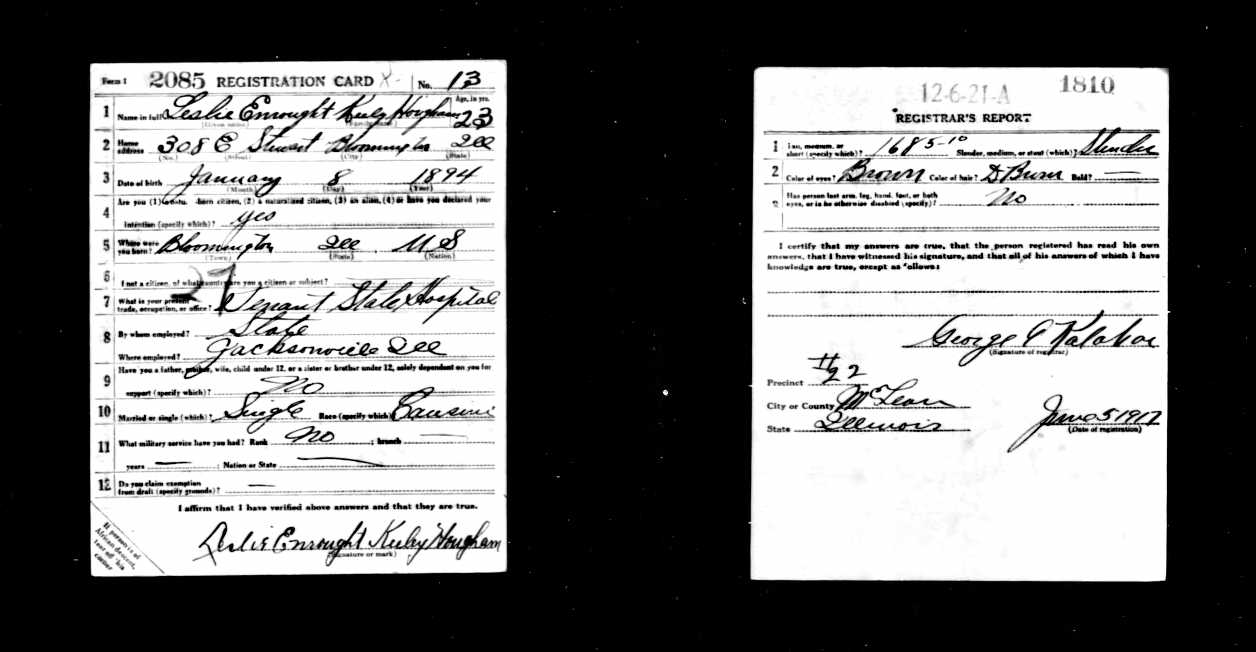 Form 1 2085 REGISTRATION CARD X- No. 13
1 Name in full Leslie Enrought Kirby Hougham Age, in yrs. 23
(Given name) (Family name)
2 Home address 308 E Stewart Bloomington Ill
(No.) (Street) (City) (State)
3 Date of birth January 8 1894
(Month) (Day) (Year)
4 Are you (1) a natural-born citizen, (2) a naturalized citizen, (3) an alien, (4) or have you declared your
intention (specify which)? yes
5 Where were you born? Bloomington Ill U S
(Town) (State) (Nation)
27
6 If not a citizen, of what country are you a citizen or subject?
7 What is your present trade, occupation, or office? State Hospital
8 By whom employed? State
Where employed? Jacksonville Ill
9 Have you a father, mother, wife, child under 12, or a sister or brother under 12, solely dependent on you for
support (specify which)? No
10 Married or single (which)? Single Race (specify which)?
11 What military service have you had? Rank No ; branch —
years — ; Nation or State —
12 Do you claim exemption
from draft (specify grounds)? —
I affirm that I have verified above answers and that they are true.
Leslie Enrought Kirby Hougham
(Signature or mark)
If person is of
African descent,
tear off this
corner
12-6-21-A 1810
REGISTRAR'S REPORT
1 Tall, medium, or
short (specify which)? 168 5-10 Slender, medium, or stout (which)? Slender
2 Color of eyes? Brown Color of hair? D Brown Bald? —
3 Has person lost arm, leg, hand, foot, or both
eyes, or is he otherwise disabled (specify)? No
I certify that my answers are true, that the person registered has read his own
answers, that I have witnessed his signature, and that all of his answers of which I have
knowledge are true, except as follows:
George
(Signature of registrar)
Precinct #22
City or County McLean
State Illinois
June 5 1917
(Date of registration)